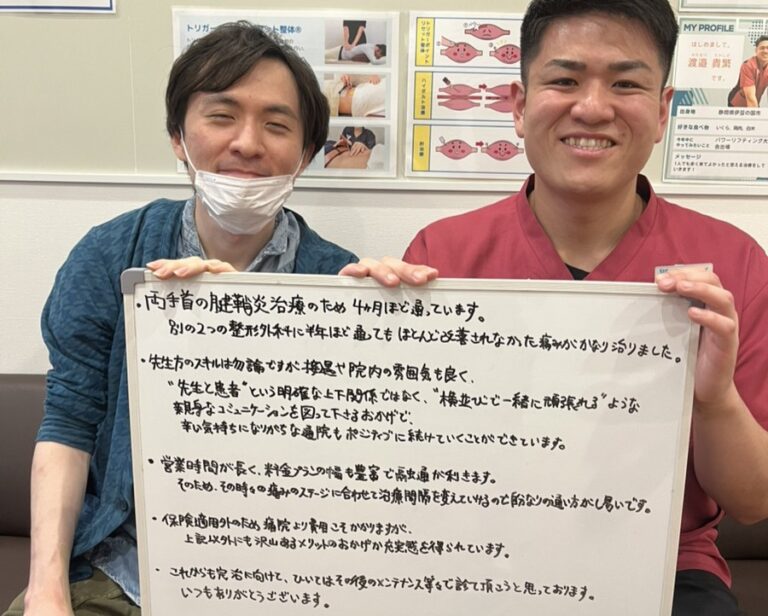 トリガー
ット整体®
トリガーポイント
リセット整体
ハイボルト治療
鍼治療
MY PROFILE
はじめまして、
渡邉 貴繁
です。
出身地
静岡県伊豆の国市
好きな食べ物
いくら、鶏肉、白米
やってみたいこと
パワーリフティング大
会出場
メッセージ
1人でも多く来てよかったと思える治療をして
いきます!
・両手首の腱鞘炎治療のため4ヶ月ほど通っています。
別の2つの整形外科に半年ほど通ってもほとんど改善されなかった痛みがかなり治りました。
・先生方のスキルは勿論ですが、接遇や院内の雰囲気も良く、
"先生と患者"という明確な上下関係ではなく、"横並びで一緒に頑張れる"ような
親身なコミュニケーションを図って下さるおかげで、
辛い気持ちになりがちな通院もポジティブに続けていくことができています。
・営業時間が長く、料金プランの幅も豊富で融通が利きます。
そのため、その時々の痛みのステージに合わせて治療間隔を変えていけるので自分なりの通い方がし易いです。
・保険適用外のため病院より費用こそかかりますが、
上記以外にも沢山あるメリットのおかげか充実感を得られています。
・これからも完治に向けて、ひいてはその後のメンテナンス等まで診て頂こうと思っております。
いつもありがとうございます。